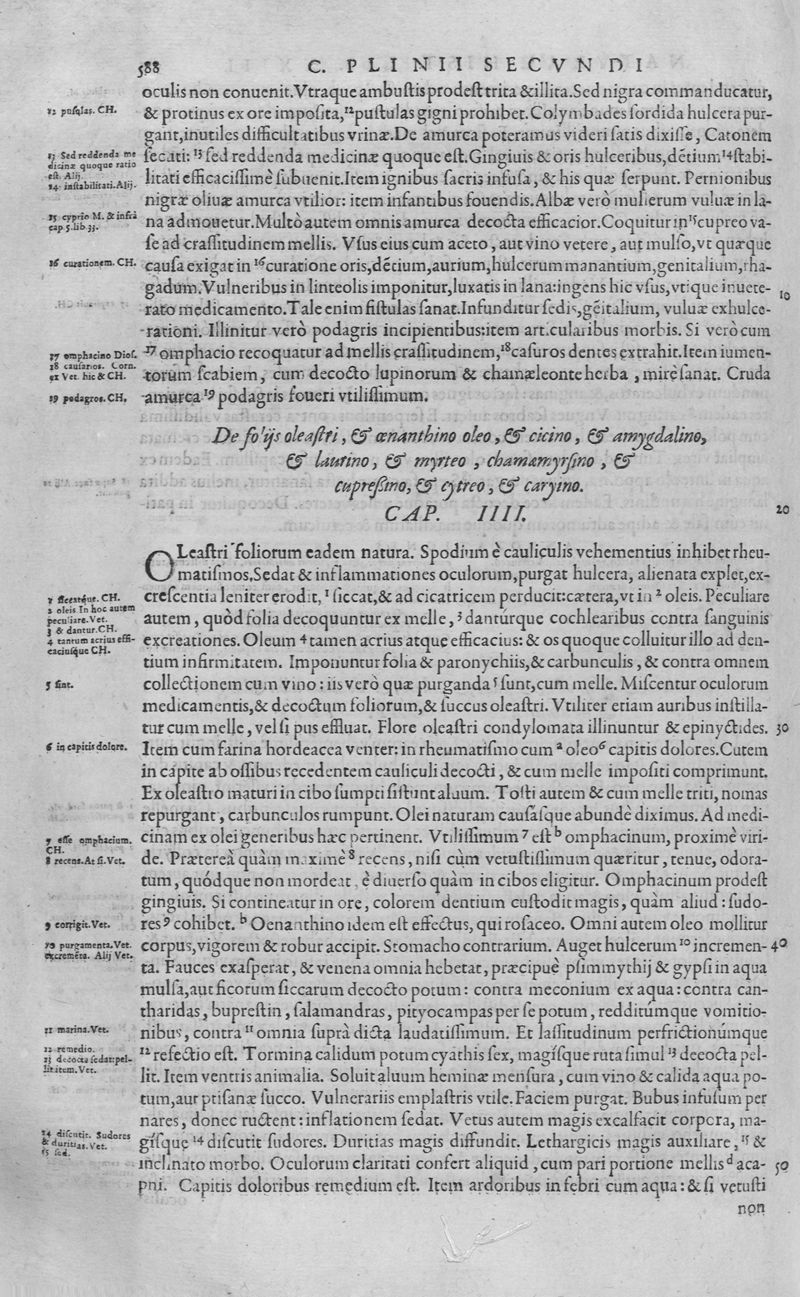 588 C. PLINII SECVNDI
oculis non conuenit. Vtraque ambuſtis prodeſt trita & illita. Sed nigra commanducatur,
12 puſtulas. CH.
& protinus ex ore impoſita, 12 puſtulas gigni prohibet. Colymbades ſordida hulcera pur-
gant, inutiles difficultatibus vrinæ. De amurca poteramus videri ſatis dixiſſe, Catonem
13 Sed reddenda me
dicinæ quoque ratio
eſt. Alij.
14 inſtabilitati. Alij.
ſecuti: 13 ſed reddenda medicinæ quoque eſt. Gingiuis & oris hulceribus, dẽtium 14 ſtabi-
litati efficaciſſimè ſubuenit. Item ignibus ſacris infuſa, & his quæ ſerpunt. Pernionibus
nigræ oliuæ amurca vtilior: item infantibus fouendis. Albæ verò mulierum vuluæ in la-
15 cyprio M. & infrà
cap 5. lib. 33.
na admouetur. Multò autem omnis amurca decocta efficacior. Coquitur in 15 cupreo va-
ſe ad craſſitudinem mellis. Vſus eius cum aceto, aut vino vetere, aut mulſo, vt quæque
16 curationem. CH.
cauſa exigat in 16 curatione oris, dẽtium, aurium, hulcerum manantium, genitalium, rha-
gadum. Vulneribus in linteolis imponitur, luxatis in lana: ingens hic vſus, vtique inuete-
10
rato medicamento. Tale enim fiſtulas ſanat. Infunditur ſedis, gẽitalium, vuluæ exhulce-
rationi. Illinitur verò podagris incipientibus: item articularibus morbis. Si verò cum
17 omphacino Dioſ.
18 cauſarios. Corn.
ex Vet. hic & CH.
17 omphacio recoquatur ad mellis craſſitudinem, 18 caſuros dentes extrahit. Item iumen-
torum ſcabiem, cum decocto lupinorum & chamæleonte herba, mirè ſanat. Cruda
19 podagros. CH.
amurca 19 podagris foueri vtiliſſimum.
De folijs oleaſtri, & œnanthino oleo, & cicino, & amygdalino,
& laurino, & myrteo, chamamyrſino, &
cupreſſino, & cytreo, & caryino.
CAP. IIII.
20
OLeaſtri foliorum eadem natura. Spodium è cauliculis vehementius inhibet rheu-
matiſmos. Sedat & inflammationes oculorum, purgat hulcera, alienata explet, ex-
1 ſiccatque. CH.
2 oleis In hoc autem
peculiare. Vet.
3 & dantur. CH.
4 tantum acrius effi-
caciuſque CH.
creſcentia leniter erodit, 1 ſiccat, & ad cicatricem perducit: cætera, vt in 2 oleis. Peculiare
autem, quòd folia decoquuntur ex melle, 3 dantúrque cochlearibus contra ſanguinis
excreationes. Oleum 4 tamen acrius atque efficacius: & os quoque colluitur illo ad den-
tium infirmitatem. Imponuntur folia & paronychiis, & carbunculis, & contra omnem
5 ſint.
collectionem cum vino: iis verò quæ purganda 5 ſunt, cum melle. Miſcentur oculorum
medicamentis, & decoctum foliorum, & ſuccus oleaſtri. Vtiliter etiam auribus inſtilla-
tur cum melle, vel ſi pus effluat. Flore oleaſtri condylomata illinuntur & epinyctides. 30
6 in capitis dolore.
Item cum farina hordeacea venter: in rheumatiſmo cum a oleo 6 capitis dolores. Cutem
in capite ab oſſibus recedentem cauliculi decocti, & cum melle impoſiti comprimunt.
Ex oleaſtro maturi in cibo ſumpti ſiſtunt aluum. Toſti autem & cum melle triti, nomas
repurgant, carbunculos rumpunt. Olei naturam cauſáſque abundè diximus. Ad medi-
7 eſſe omphacium.
CH.
8 recens. At ſi. Vet.
cinam ex olei generibus hæc pertinent. Vtiliſſimum 7 eſt b omphacinum, proximè viri-
de. Præterea quàm maximè 8 recens, niſi cùm vetuſtiſſimum quæritur, tenue, odora-
tum, quódque non mordeat, è diuerſo quàm in cibos eligitur. Omphacinum prodeſt
gingiuis. Si contineatur in ore, colorem dentium cuſtodit magis, quàm aliud: ſudo-
9 corrigit. Vet.
res 9 cohibet. b Oenanthino idem eſt effectus, qui roſaceo. Omni autem oleo mollitur
10 purgamenta. Vet.
excremẽta. Alij Vet.
corpus, vigorem & robur accipit. Stomacho contrarium. Auget hulcerum 10 incremen- 40
ta. Fauces exaſperat, & venena omnia hebetat, præcipuè pſimmythij & gypſi in aqua
mulſa, aut ficorum ſiccarum decocto potum: contra meconium ex aqua: contra can-
tharidas, bupreſtin, ſalamandras, pityocampas per ſe potum, redditúmque vomitio-
11 marina. Vet.
nibus, contra 11 omnia ſuprà dicta laudatiſſimum. Et laſſitudinum perfrictionúmque
12 remedio.
13 decocta ſedat: pel-
lit item. Vet.
12 refectio eſt. Tormina calidum potum cyathis ſex, magíſque ruta ſimul 13 decocta pel-
lit. Item ventris animalia. Soluit aluum heminæ menſura, cum vino & calida aqua po-
tum, aut ptiſanæ ſucco. Vulnerariis emplaſtris vtile. Faciem purgat. Bubus infuſum per
nares, donec ructent: inflationem ſedat. Vetus autem magis excalfacit corpora, ma-
14 diſcutit. Sudores
& duritias. Vet.
15 ſed.
gíſque 14 diſcutit ſudores. Duritias magis diffundit. Lethargicis magis auxiliare, 15 &
inclinato morbo. Oculorum claritati confert aliquid, cum pari portione mellis d aca- 50
pni. Capitis doloribus remedium eſt. Item ardoribus in febri cum aqua: & ſi vetuſti
non